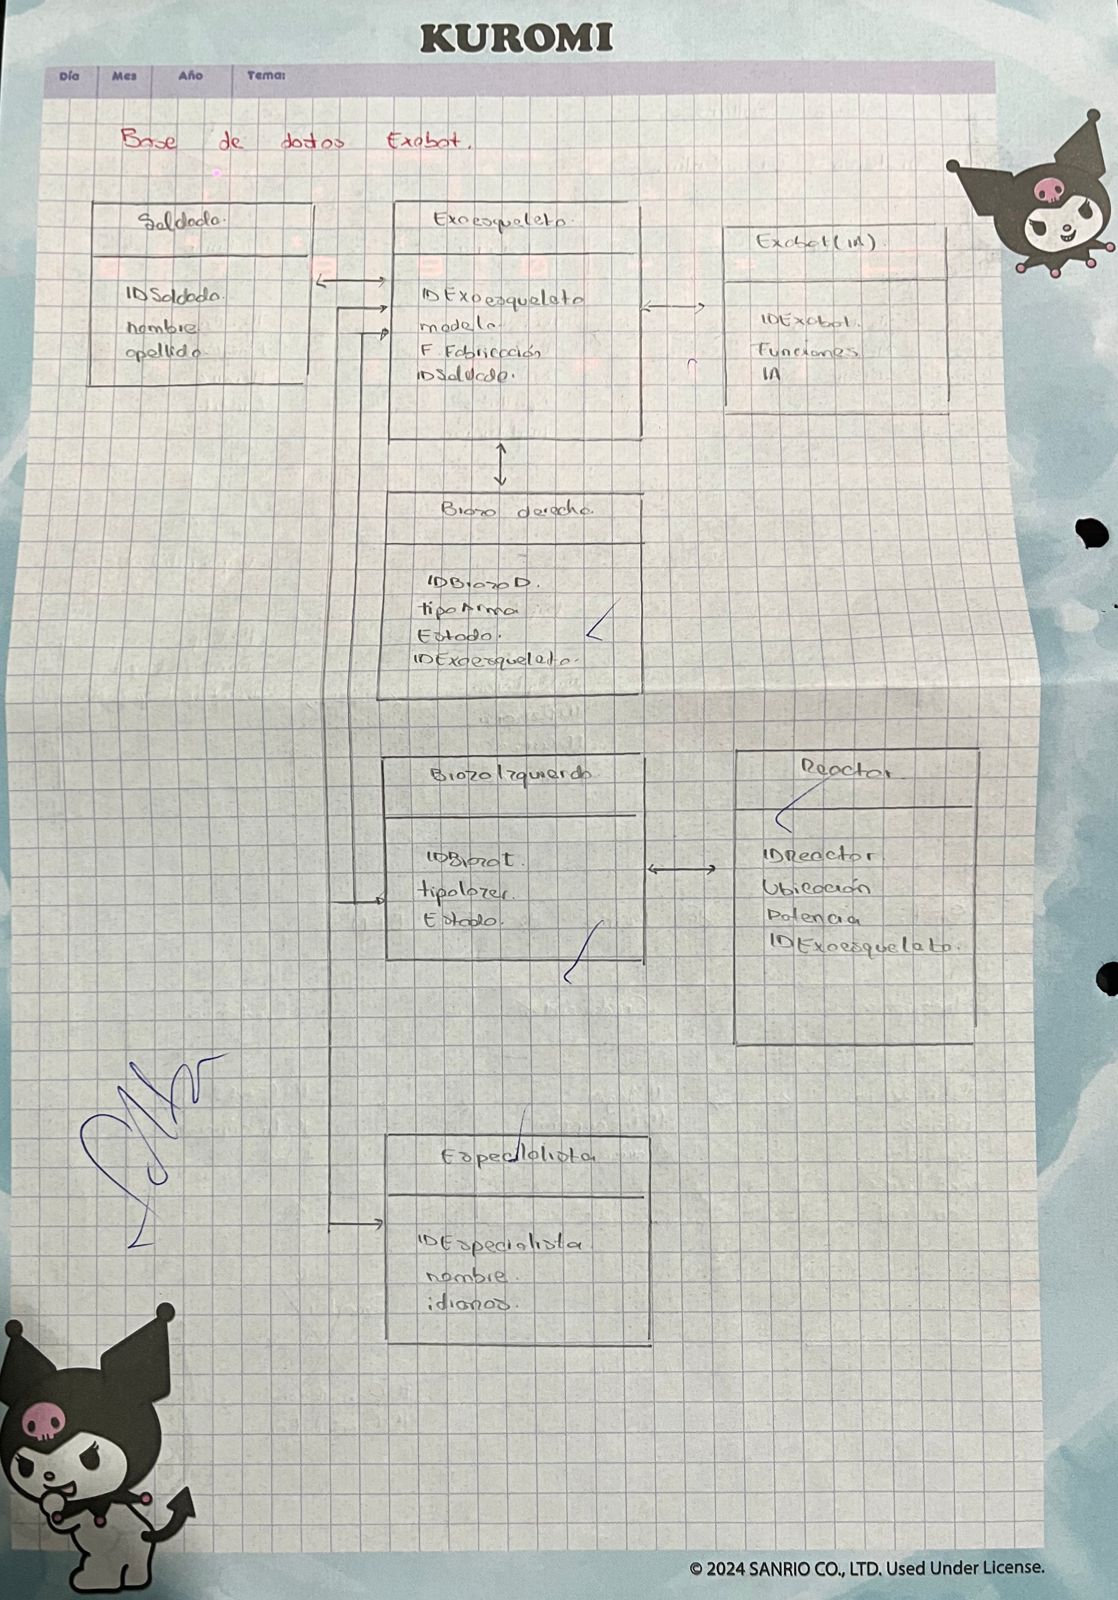 KUROMI
Día Mes Año Tema:
Base de datos Exobot.
Soldado.
IDSoldado.
nombre
apellido
Exoesqueleto.
IDExoesqueleto
modelo
F. Fabricación
IDSoldado.
Exobot (IA)
IDExobot.
Funciones
IA
Brazo derecho.
IDBrazoD.
tipoArma
Estado.
IDExoesqueleto.
Brazo Izquierdo
tipolazer.
Estado.
Reactor
IDReactor
Ubicación
Potencia
IDExoesqueleto.
Especialista
IDEspecialista
nombre
© 2024 SANRIO CO., LTD. Used Under License.